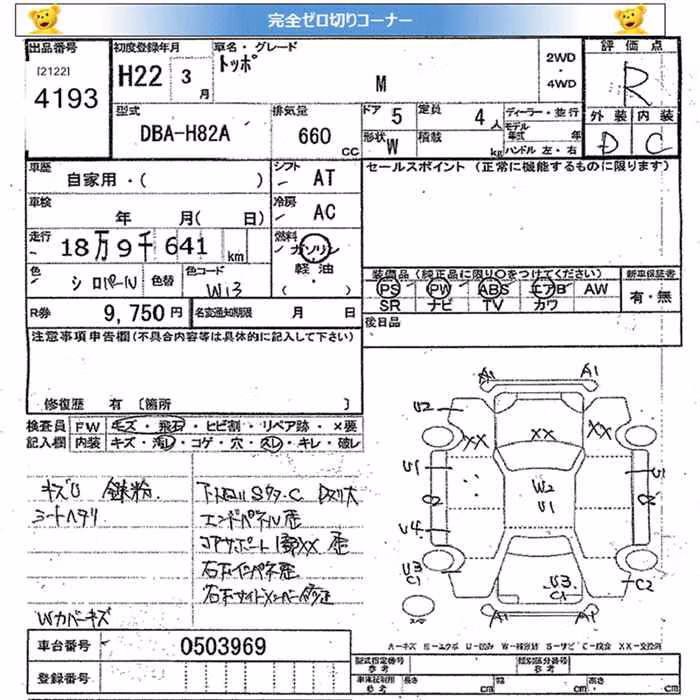 完全ゼロ切りコーナー
出品番号
[2122]
4193
初度登録年月
H22 3月
車名・グレード
トッポ
M
2WD
・
4WD
評価点
R
型式
DBA-H82A
排気量
660 CC
ドア 5
定員 4 人
形状 W
積載 kg
ディーラー・並行
モデル年式 年
ハンドル 左・右
外装 内装
D C
車歴
自家用・( )
シフト
AT
車検
年 月( 日)
冷房
AC
走行
18万9千641 km
燃料
ガソリン
・
軽油
・
( )
色
シロパール
色替
色コード
W13
R券
9,750円
名変通知期限 月 日
セールスポイント (正常に機能するものに限ります)
装備品(純正品に限り○をつけてください)
PS PW ABS エアB AW
SR ナビ TV カワ
新車保証書
有・無
後日品
注意事項申告欄(不具合内容等は具体的に記入して下さい)
修復歴 有 〔箇所 〕
検査員記入欄
FW キズ・飛石・ヒビ割・リペア跡・×要
内装 キズ・汚れ・コゲ・穴・スレ・キレ・破レ
キズU 鉄粉
シートヘタリ
エンドパネル歪
コアサポート
Wカバーキズ
A1 A1
U2
XX XX XX
U1
W2
U1
U4
U3
C1
U3
C2
A1 A1
車台番号 0503969
登録番号
型式指定番号
参考
類別区分番号
参考
車体証明用
参考
長さ cm
幅 cm
高さ cm